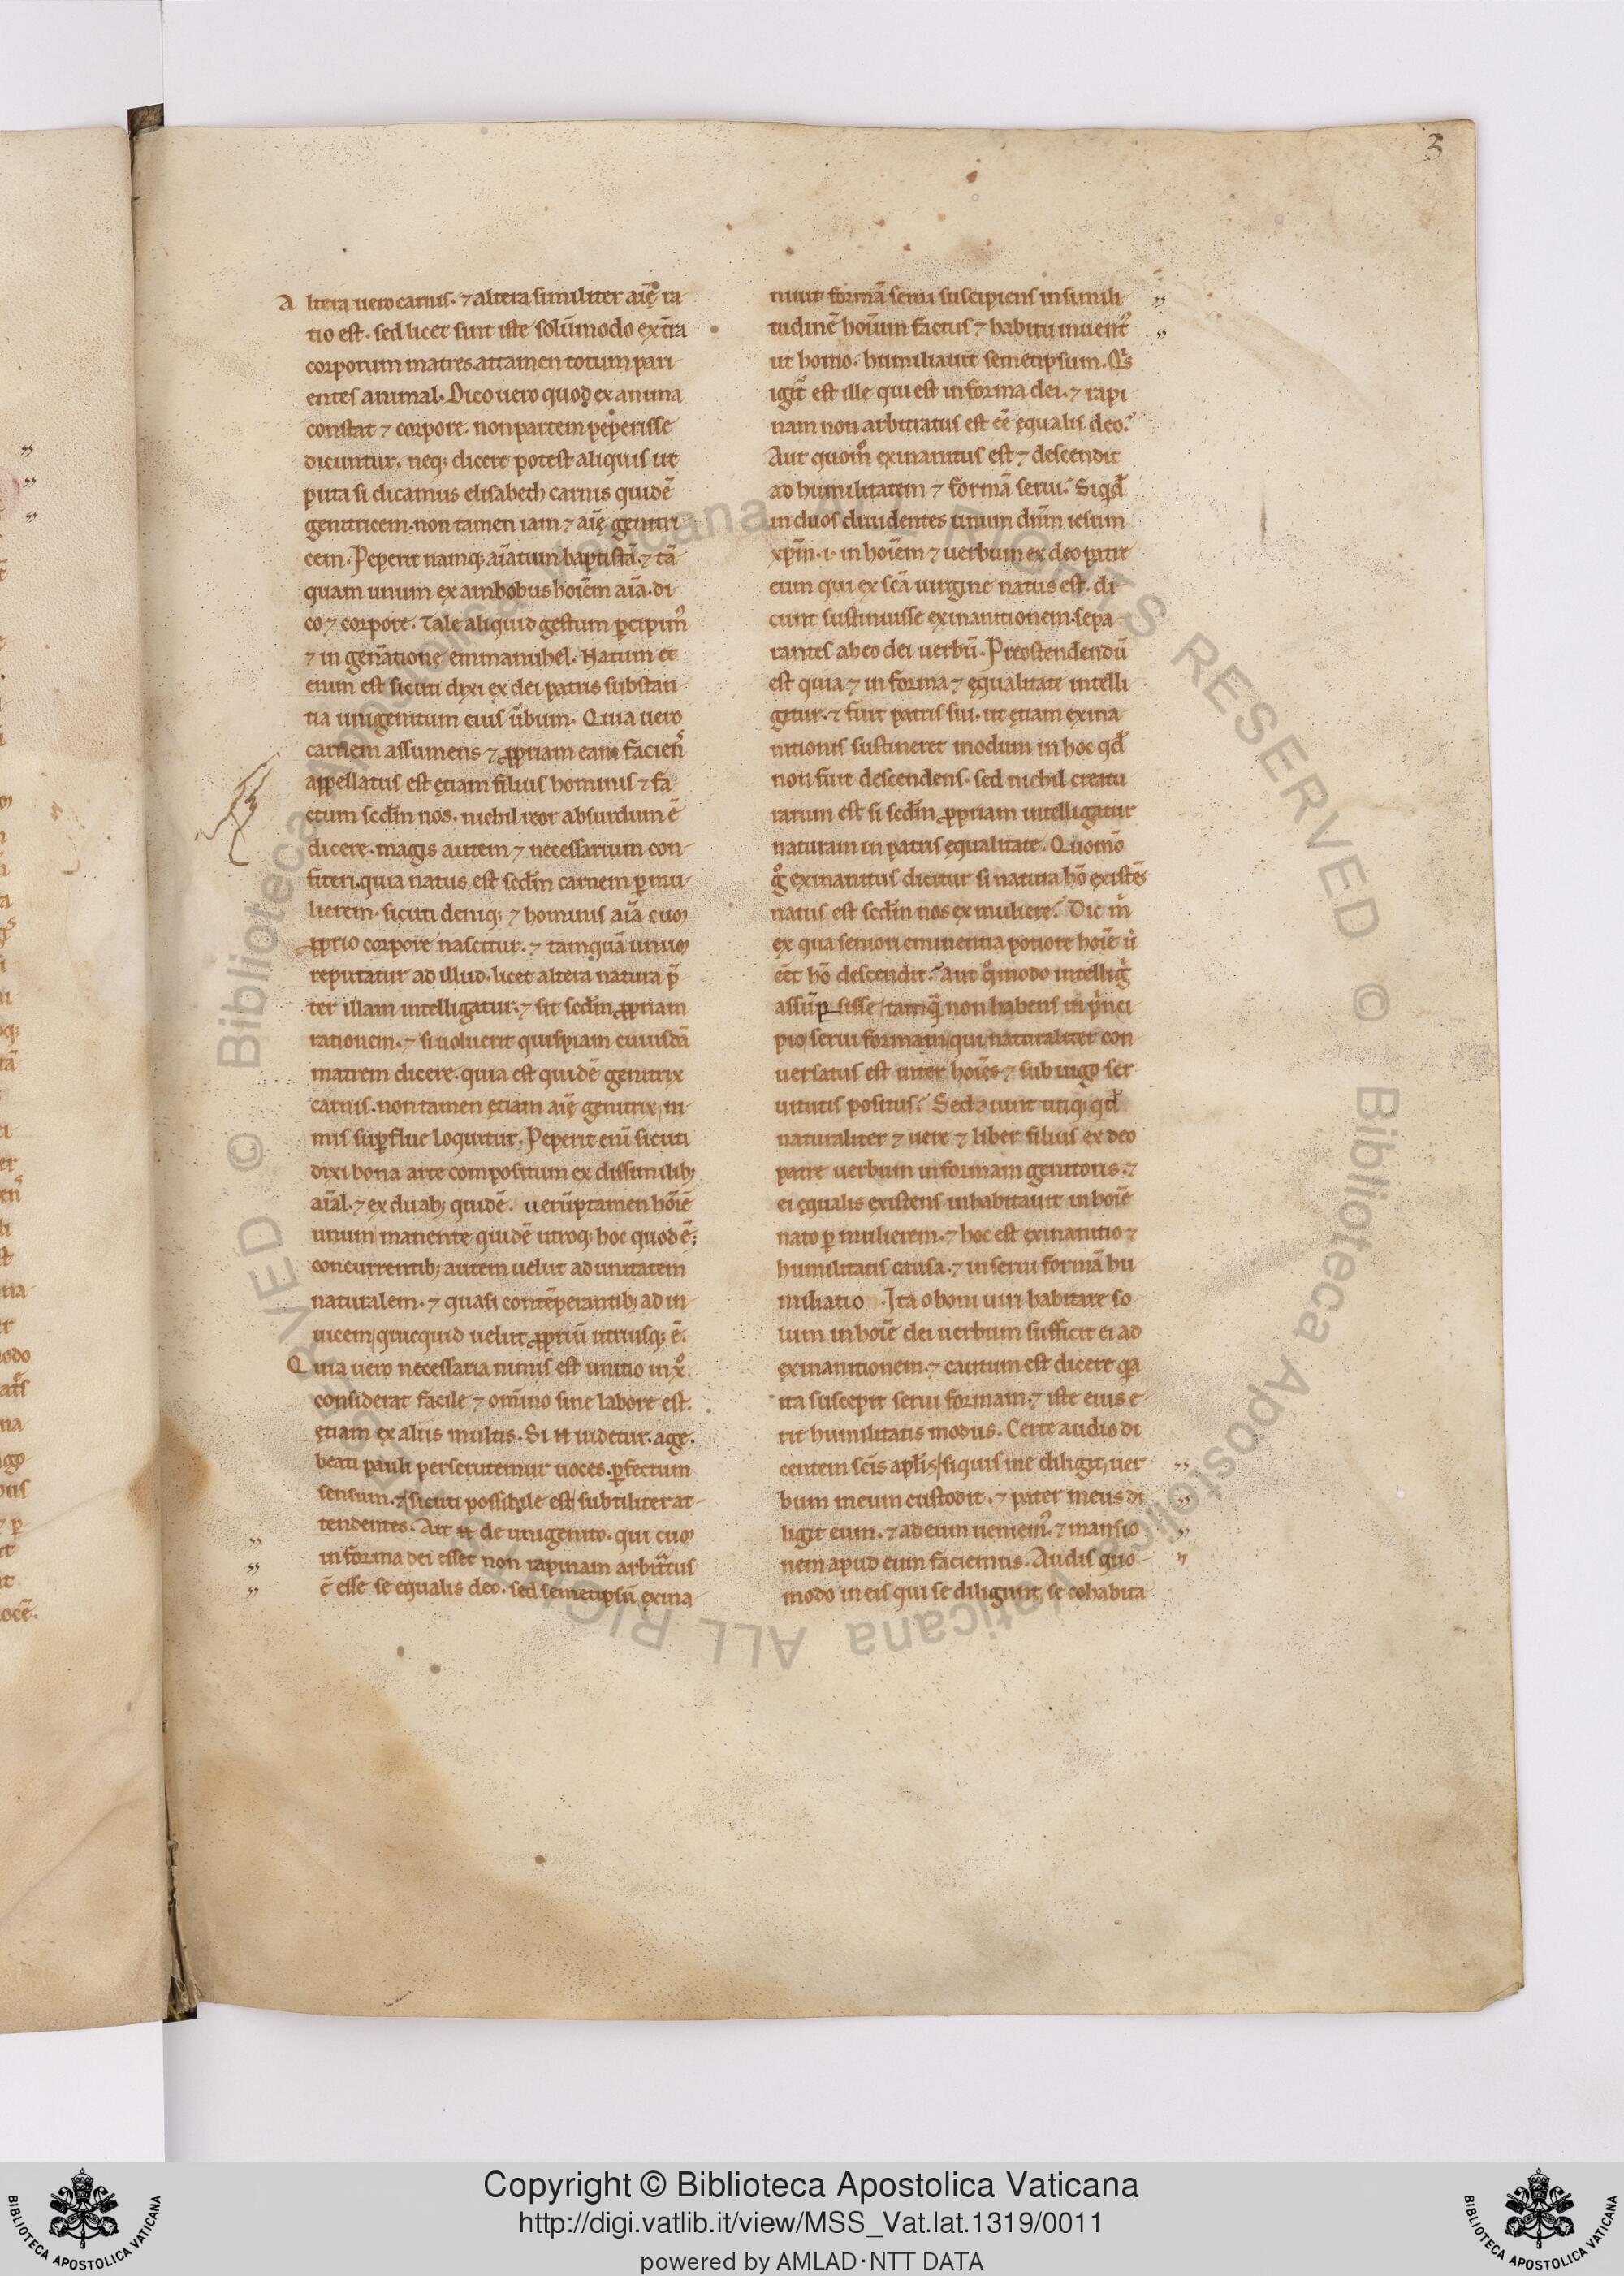 3
Altera uero carnis. ⁊ altera similiter aīę ra
tio est. sed licet sint iste solūmodo ext̄ra
corporum matres. attamen totum pari-
entes animal. Dico uero quod ex anima
constat ⁊ corpore. non partem peperisse
dicuntur. neq; dicere potest aliquis ut
puta si dicamus elisabeth carnis quidē
genitricem. non tamen iam ⁊ aīę genitri
cem. Peperit namq; aīatum baptistā. ⁊ tā
quam unum ex ambobus hoīem aīa. di
co ⁊ corpore. Tale aliquid gestum ꝑcipim᷒
⁊ in gen̄atione emmanuhel. Natum et
enim est sicuti dixi ex dei patris substan
tia unigenitum eius ūbum. Quia uero
carnem assumens ⁊ ꝓpriam eam facien᷒
appellatus est ętiam filius hominis ⁊ fa
ctum scd̄m nos. nichil reor absurdum ē
dicere. magis autem ⁊ necessarium con-
fiteri. quia natus est scd̄m carnem ꝑ mu-
lierem. sicuti deniq; ⁊ hominis aīa cum
ꝓprio corpore nascitur. ⁊ tamquā unum
reputatur ad illud. licet altera natura p̄
ter illam intelligatur. ⁊ sit scd̄m ꝓpriam
rationem. ⁊ si uoluerit quispiam cuiusdā
matrem dicere. quia est quidē genitrix
carnis. non tamen ętiam aīę genitrix, ni-
mis suꝑflue loquitur. Peperit enī sicuti
dixi bona arte compositum ex dissimilib;
aīal. ⁊ ex duab; quidē. uerūptamen hōiē
unum manente quidē utroq; hoc quod ē;
concurrentib; autem uelut ad unitatem
naturalem. ⁊ quasi contēperantib; ad in-
uicem quicquid uelut ꝓpriū utriusq; ē.
Quia uero necessaria nimis est unitio in xo.
considerat facile ⁊ om̄ino sine labore est.
ętiam ex aliis multis. Si uidetur. age.
beati pauli perscrutemur uoces. ꝑfectum
sensum. ⁊ sicuti possibile est subtiliter at-
tendentes. Ait de unigenito. qui cum
in forma dei esset non rapinam arbitratus
ē esse se equalis deo. sed semetipsū exina-
niuit formā serui suscipiens in simili
tudinē hoīum factus ⁊ habitu inuent᷒
ut homo. humiliauit semetipsum. Qis
igit᷑ est ille qui est in forma dei. ⁊ rapi
nam non arbitratus est eē equalis deo.
Aut quom° exinanitus est ⁊ descendit
ad humilitatem ⁊ formā serui. Siqd̄
in duos diuidentes unum dūm iesum
xp̄m. i. in hoīem ⁊ uerbum ex deo patre
eum qui ex scā uirgine natus est. di
cunt sustinuisse exinanitionem. sepa
rantes ab eo dei uerbū. Preostendendū
est quia ⁊ in forma ⁊ equalitate intelli
gitur. ⁊ fuit patris sui. ut ętiam exina
nitionis sustineret modum in hoc qd̄
non fuit descendens. sed nichil creatu
rarum est si scd̄m ꝓpriam intelligatur
naturam in patris equalitate. Quomō
g° exinanitus dicitur si natura hō existēs
natus est scd̄m nos ex muliere. Dic m̄
ex qua seniori eminentia potiore hoīe ū
eēt hō descendit. aut q°modo intelliḡ
assūpsisse tamq̄ non habens in p̄nci
pio serui formam qui naturaliter con-
uersatus est inter hoīes ⁊ sub iugo ser-
uitutis positus. Sed aiunt utiq; qd̄
naturaliter ⁊ uere ⁊ liber filius ex deo
patre uerbum in formam genitoris. ⁊
ei equalis existens. inhabitauit in hoīe
nato ꝑ mulierem. ⁊ hoc est exinanitio ⁊
humilitatis causa. ⁊ in serui formā hu
miliatio. Ita o boni uiri habitare so
lum in hoīe dei uerbum sufficit ei ad
exinanitionem. ⁊ cautum est dicere qa
ita suscepit serui formam. ⁊ iste eius e-
rit humilitatis modus. Certe audio di
centem scīs aplīs siquis me diligit, uer
bum meum custodit. ⁊ pater meus di
ligit eum. ⁊ ad eum ueniem᷒ ⁊ mansio
nem apud eum faciemus. Audis quo-
modo in eis qui se diligunt, se cohabita
Copyright © Biblioteca Apostolica Vaticana
http://digi.vatlib.it/view/MSS_Vat.lat.1319/0011
powered by AMLAD·NTT DATA
BIBLIOTECA APOSTOLICA VATICANA
BIBLIOTECA APOSTOLICA VATICANA
© Biblioteca Apostolica Vaticana ALL RIGHTS RESERVED © Biblioteca Apostolica Vaticana ALL RIGHTS RESERVED